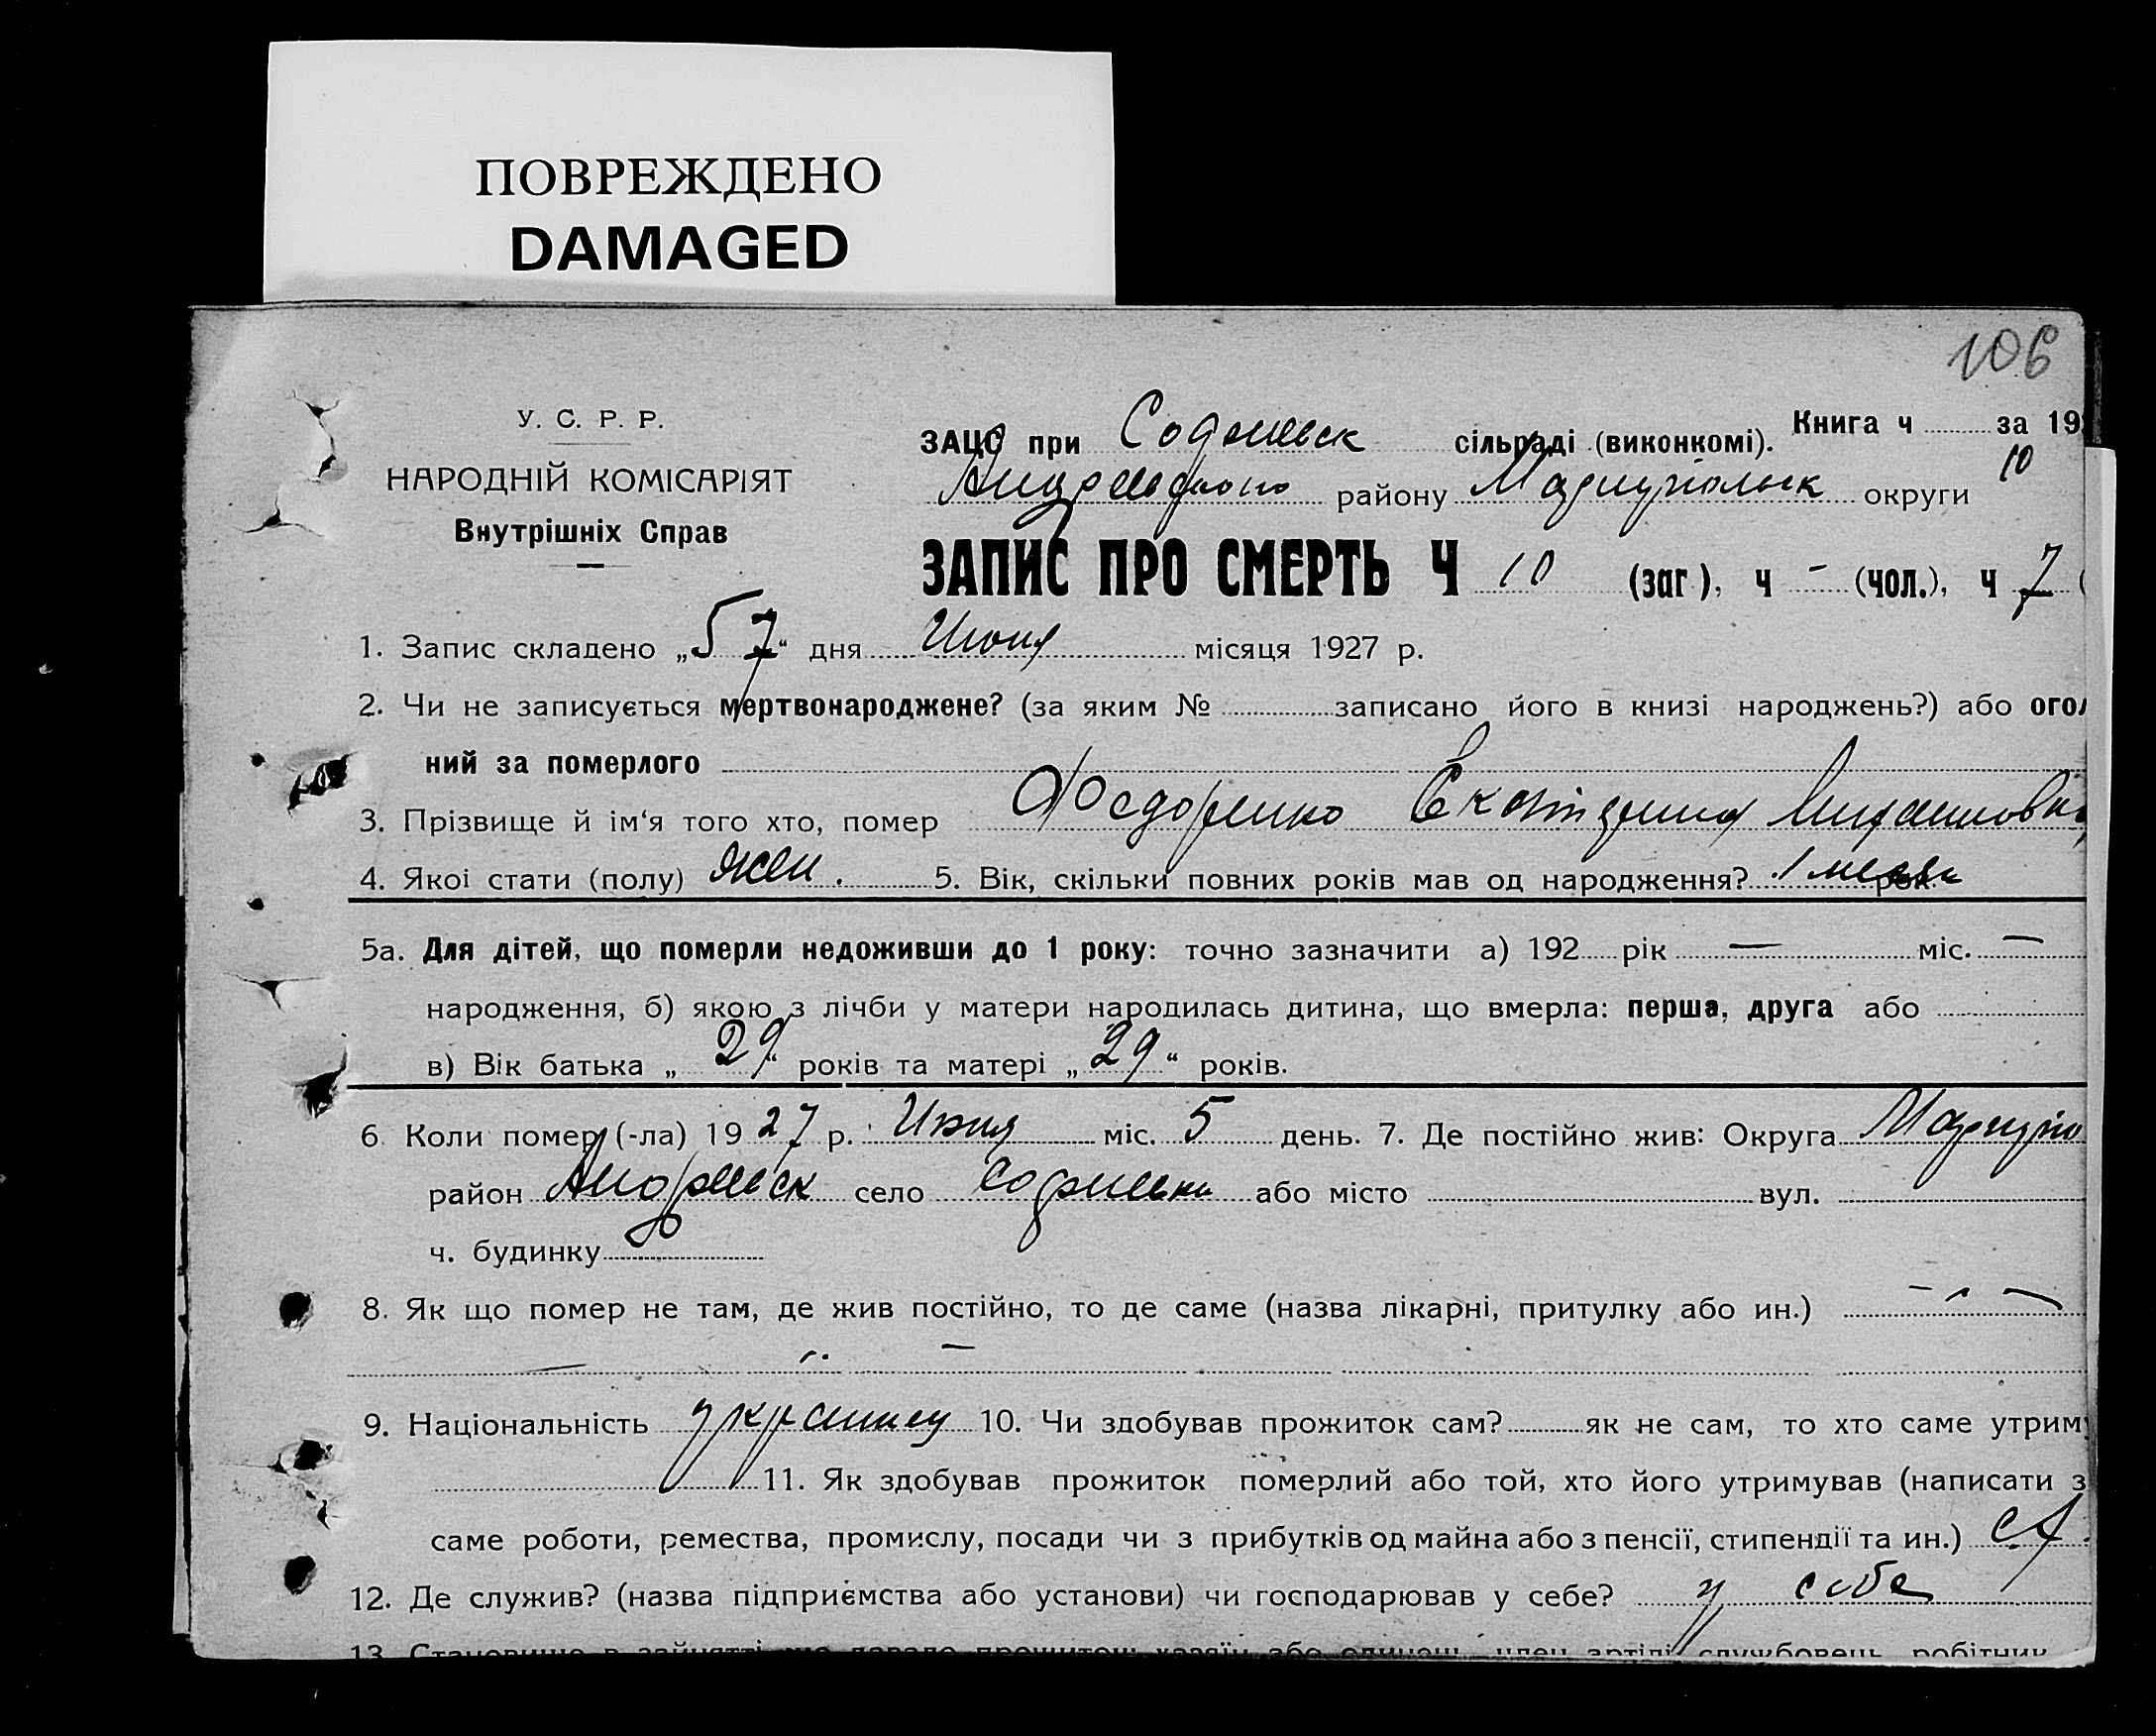 ПОВРЕЖДЕНО
DAMAGED
106
У. С. Р. Р.
НАРОДНІЙ КОМІСАРІЯТ
Внутрішніх Справ
ЗАЦС при сільраді (виконкомі). Книга ч за 19
району Мариупольск округи 10
ЗАПИС ПРО СМЕРТЬ Ч 10 (заг.), ч - (чол.), ч 7 (
1. Запис складено „5 7“ дня Июня місяця 1927 р.
2. Чи не записується мертвонароджене? (за яким № записано його в книзі народжень?) або огол
ний за померлого
3. Прізвище й ім‘я того хто, помер Федоренко Екатерина
4. Якоі стати (полу) жен. 5. Вік, скільки повних років мав од народження? 1 месяц рок.
5а. Для дітей, що померли недоживши до 1 року: точно зазначити а) 192 рік — міс. —
народження, б) якою з лічби у матери народилась дитина, що вмерла: перша, друга або
в) Вік батька „29“ років та матері „29“ років.
6 Коли помер (-ла) 1927 р. Июня міс. 5 день. 7. Де постійно жив: Округа Мариупо
район Андреевск село або місто вул.
ч. будинку
8. Як що помер не там, де жив постійно, то де саме (назва лікарні, притулку або ин.)
9. Національність 10. Чи здобував прожиток сам? як не сам, то хто саме утрим
11. Як здобував прожиток померлий або той, хто його утримував (написати з
саме роботи, ремества, промислу, посади чи з прибутків од майна або з пенсії, стипендії та ин.)
12. Де служив? (назва підприємства або установи) чи господарював у себе? у себе
13 Становище в занятті що давало прожиток: хазяїн або одинош, член артілі службовець робітник